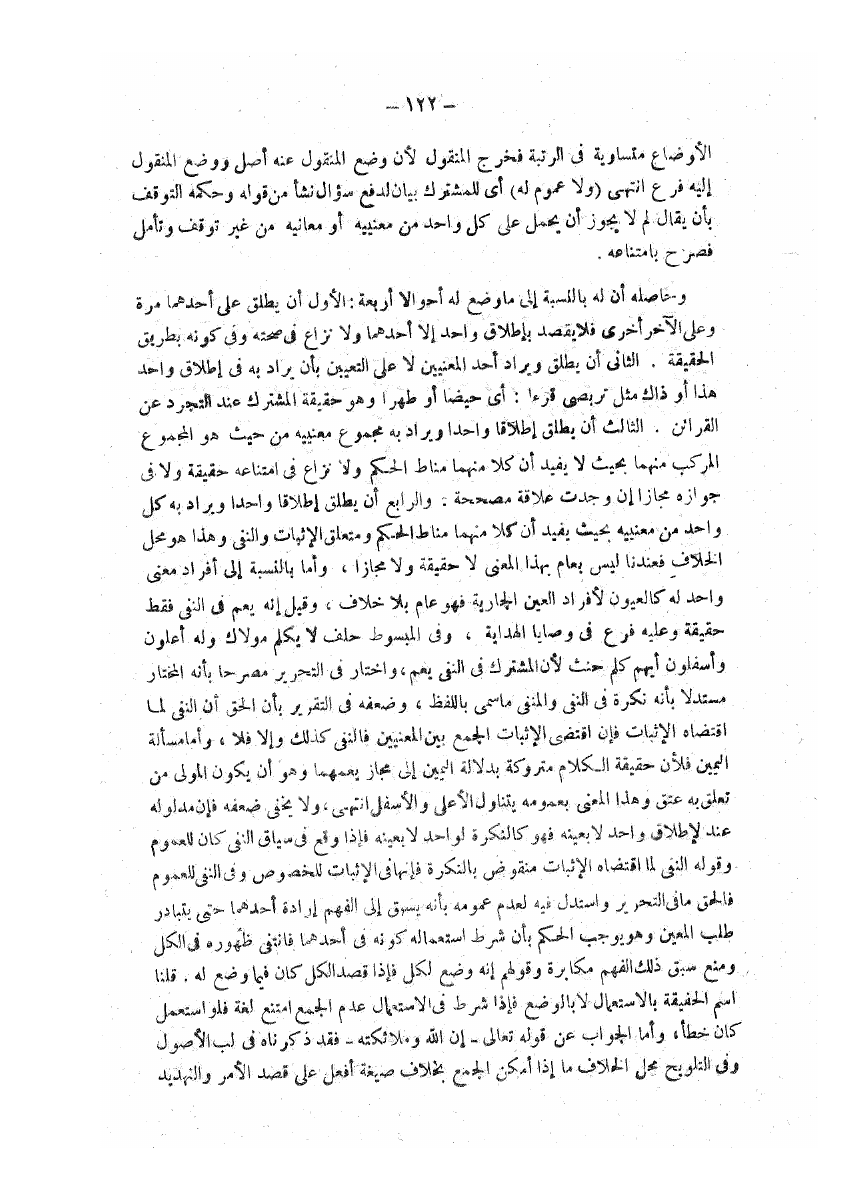 — ١٢٢ —
الأوضاع متساوية فى الرتبة فخرج المنقول لأن وضع المنقول عنه أصل ووضع المنقول
إليه فرع انتهى (ولا عموم له) أى للمشترك بيان لدفع سؤال نشأ من قوله وحكمه التوقف
بأن يقال لم لا يجوز أن يحمل على كل واحد من معنييه أو معانيه من غير توقف وتأمل
فصرح بامتناعه .
وحاصله أن له بالنسبة إلى ماوضع له أحوالا أربعة : الأول أن يطلق على أحدهما مرة
وعلى الآخر أخرى فلا يقصد بإطلاق واحد إلا أحدهما ولا نزاع فى صحته وفى كونه بطريق
الحقيقة . الثانى أن يطلق ويراد أحد المعنيين لا على التعيين بأن يراد به فى إطلاق واحد
هذا أو ذاك مثل تربصى قرءا : أى حيضا أو طهرا وهو حقيقة المشترك عند التجرد عن
القرائن . الثالث أن يطلق إطلاقا واحدا ويراد به مجموع معنييه من حيث هو المجموع
المركب منهما بحيث لا يفيد أن كلا منهما مناط الحكم ولا نزاع فى امتناعه حقيقة ولا فى
جوازه مجازا إن وجدت علاقة مصححة . والرابع أن يطلق إطلاقا واحدا ويراد به كل
واحد من معنييه بحيث يفيد أن كلا منهما مناط الحكم ومتعلق الإثبات والنفى وهذا هو محل
الخلاف فعندنا ليس بعام بهذا المعنى لا حقيقة ولا مجازا ، وأما بالنسبة إلى أفراد معنى
واحد له كالعيون لأفراد العين الجارية فهو عام بلا خلاف ، وقيل إنه يعم فى النفى فقط
حقيقة وعليه فرع فى وصايا الهداية ، وفى المبسوط حلف لا يكلم مولاك وله أعلون
وأسفلون أيهم كلم حنث لأن المشترك فى النفى يعم ، واختار فى التحرير مصرحا بأنه المختار
مستدلا بأنه نكرة فى النفى والمنفى ماسمى باللفظ ، وضعفه فى التقرير بأن الحق أن النفى لما
اقتضاه الإثبات فإن اقتضى الإثبات الجمع بين المعنيين فالنفى كذلك وإلا فلا ، وأما مسألة
اليمين فلأن حقيقة الكلام متروكة بدلالة اليمين إلى مجاز يعمهما وهو أن يكون المولى من
تعلق به عتق وهذا المعنى بعمومه يتناول الأعلى والأسفل انتهى ، ولا يخفى ضعفه فإن مدلوله
عند الإطلاق واحد لا بعينه فهو كالنكرة لواحد لابعينه فإذا وقع فى سياق النفى كان للعموم
وقوله النفى لما اقتضاه الإثبات منقوض بالنكرة فإنها فى الإثبات للخصوص وفى النفى للعموم
فالحق مافى التحرير واستدل فيه لعدم عمومه بأنه يسبق إلى الفهم إرادة أحدهما حتى يتبادر
طلب المعين وهو يوجب الحكم بأن شرط استعماله كونه فى أحدهما فانتفى ظهوره فى الكل
ومنع سبق ذلك الفهم مكابرة وقولهم إنه وضع لكل فإذا قصد الكل كان فيما وضع له . قلنا
اسم الحقيقة بالاستعمال لا بالوضع فإذا شرط فى الاستعمال عدم الجمع امتنع لغة فلو استعمل
كان خطأ ، وأما الجواب عن قوله تعالى ـ إن الله وملائكته ـ فقد ذكرناه فى لب الأصول
وفى التلويح محل الخلاف ما إذا أمكن الجمع بخلاف صيغة أفعل على قصد الأمر والتهديد